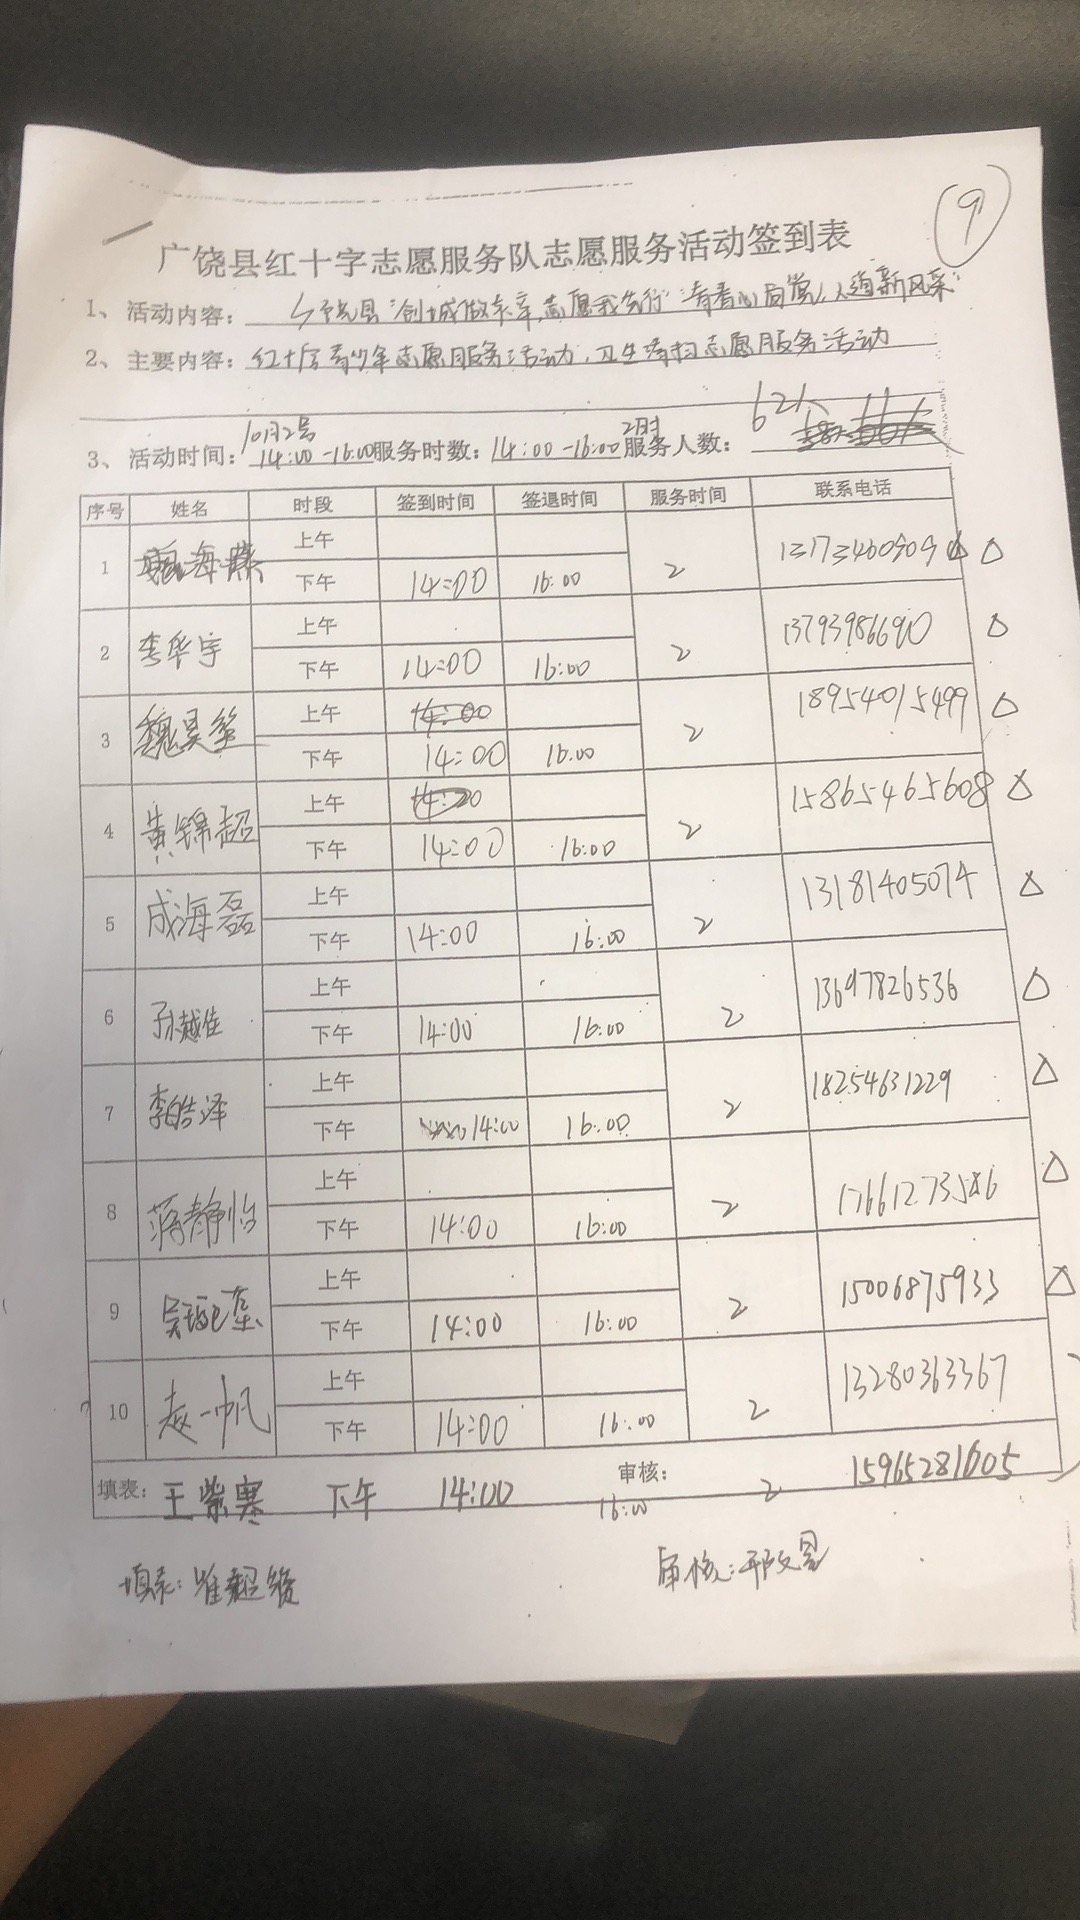 9
广饶县红十字志愿服务队志愿服务活动签到表
1、活动内容: 广饶县"创城做表率,志愿我先行""青春心向党,人道新风采"
2、主要内容: 红十字青少年志愿服务活动,卫生清扫志愿服务活动
3、活动时间: 10月2号 14:00-16:00 服务时数: 14:00-16:00 2时 服务人数: 62人
序号 姓名 时段 签到时间 签退时间 服务时间 联系电话
1 海 上午
下午 14:00 16:00 2 △
2 李华宇 上午 △
下午 14:00 16:00 2
3 魏昊 上午 14:00 18954015499 △
下午 14:00 16:00 2
4 黄锦超 上午 15865465608 △
下午 14:00 16:00 2
5 成海磊 上午 13181405074 △
下午 14:00 16:00 2
6 孙越佳 上午 13697826536 △
下午 14:00 16:00 2
7 李皓泽 上午 18254631229 △
下午 14:00 16:00 2
8 蒋静怡 上午 △
下午 14:00 16:00 2
9 吴 上午 15006875933 △
下午 14:00 16:00 2
10 赵一帆 上午 13280363367
下午 14:00 16:00 2
填表: 王紫寒 下午 14:00 审核: 16:00 2 15965281605
填表: 超 审核: 邢文昊